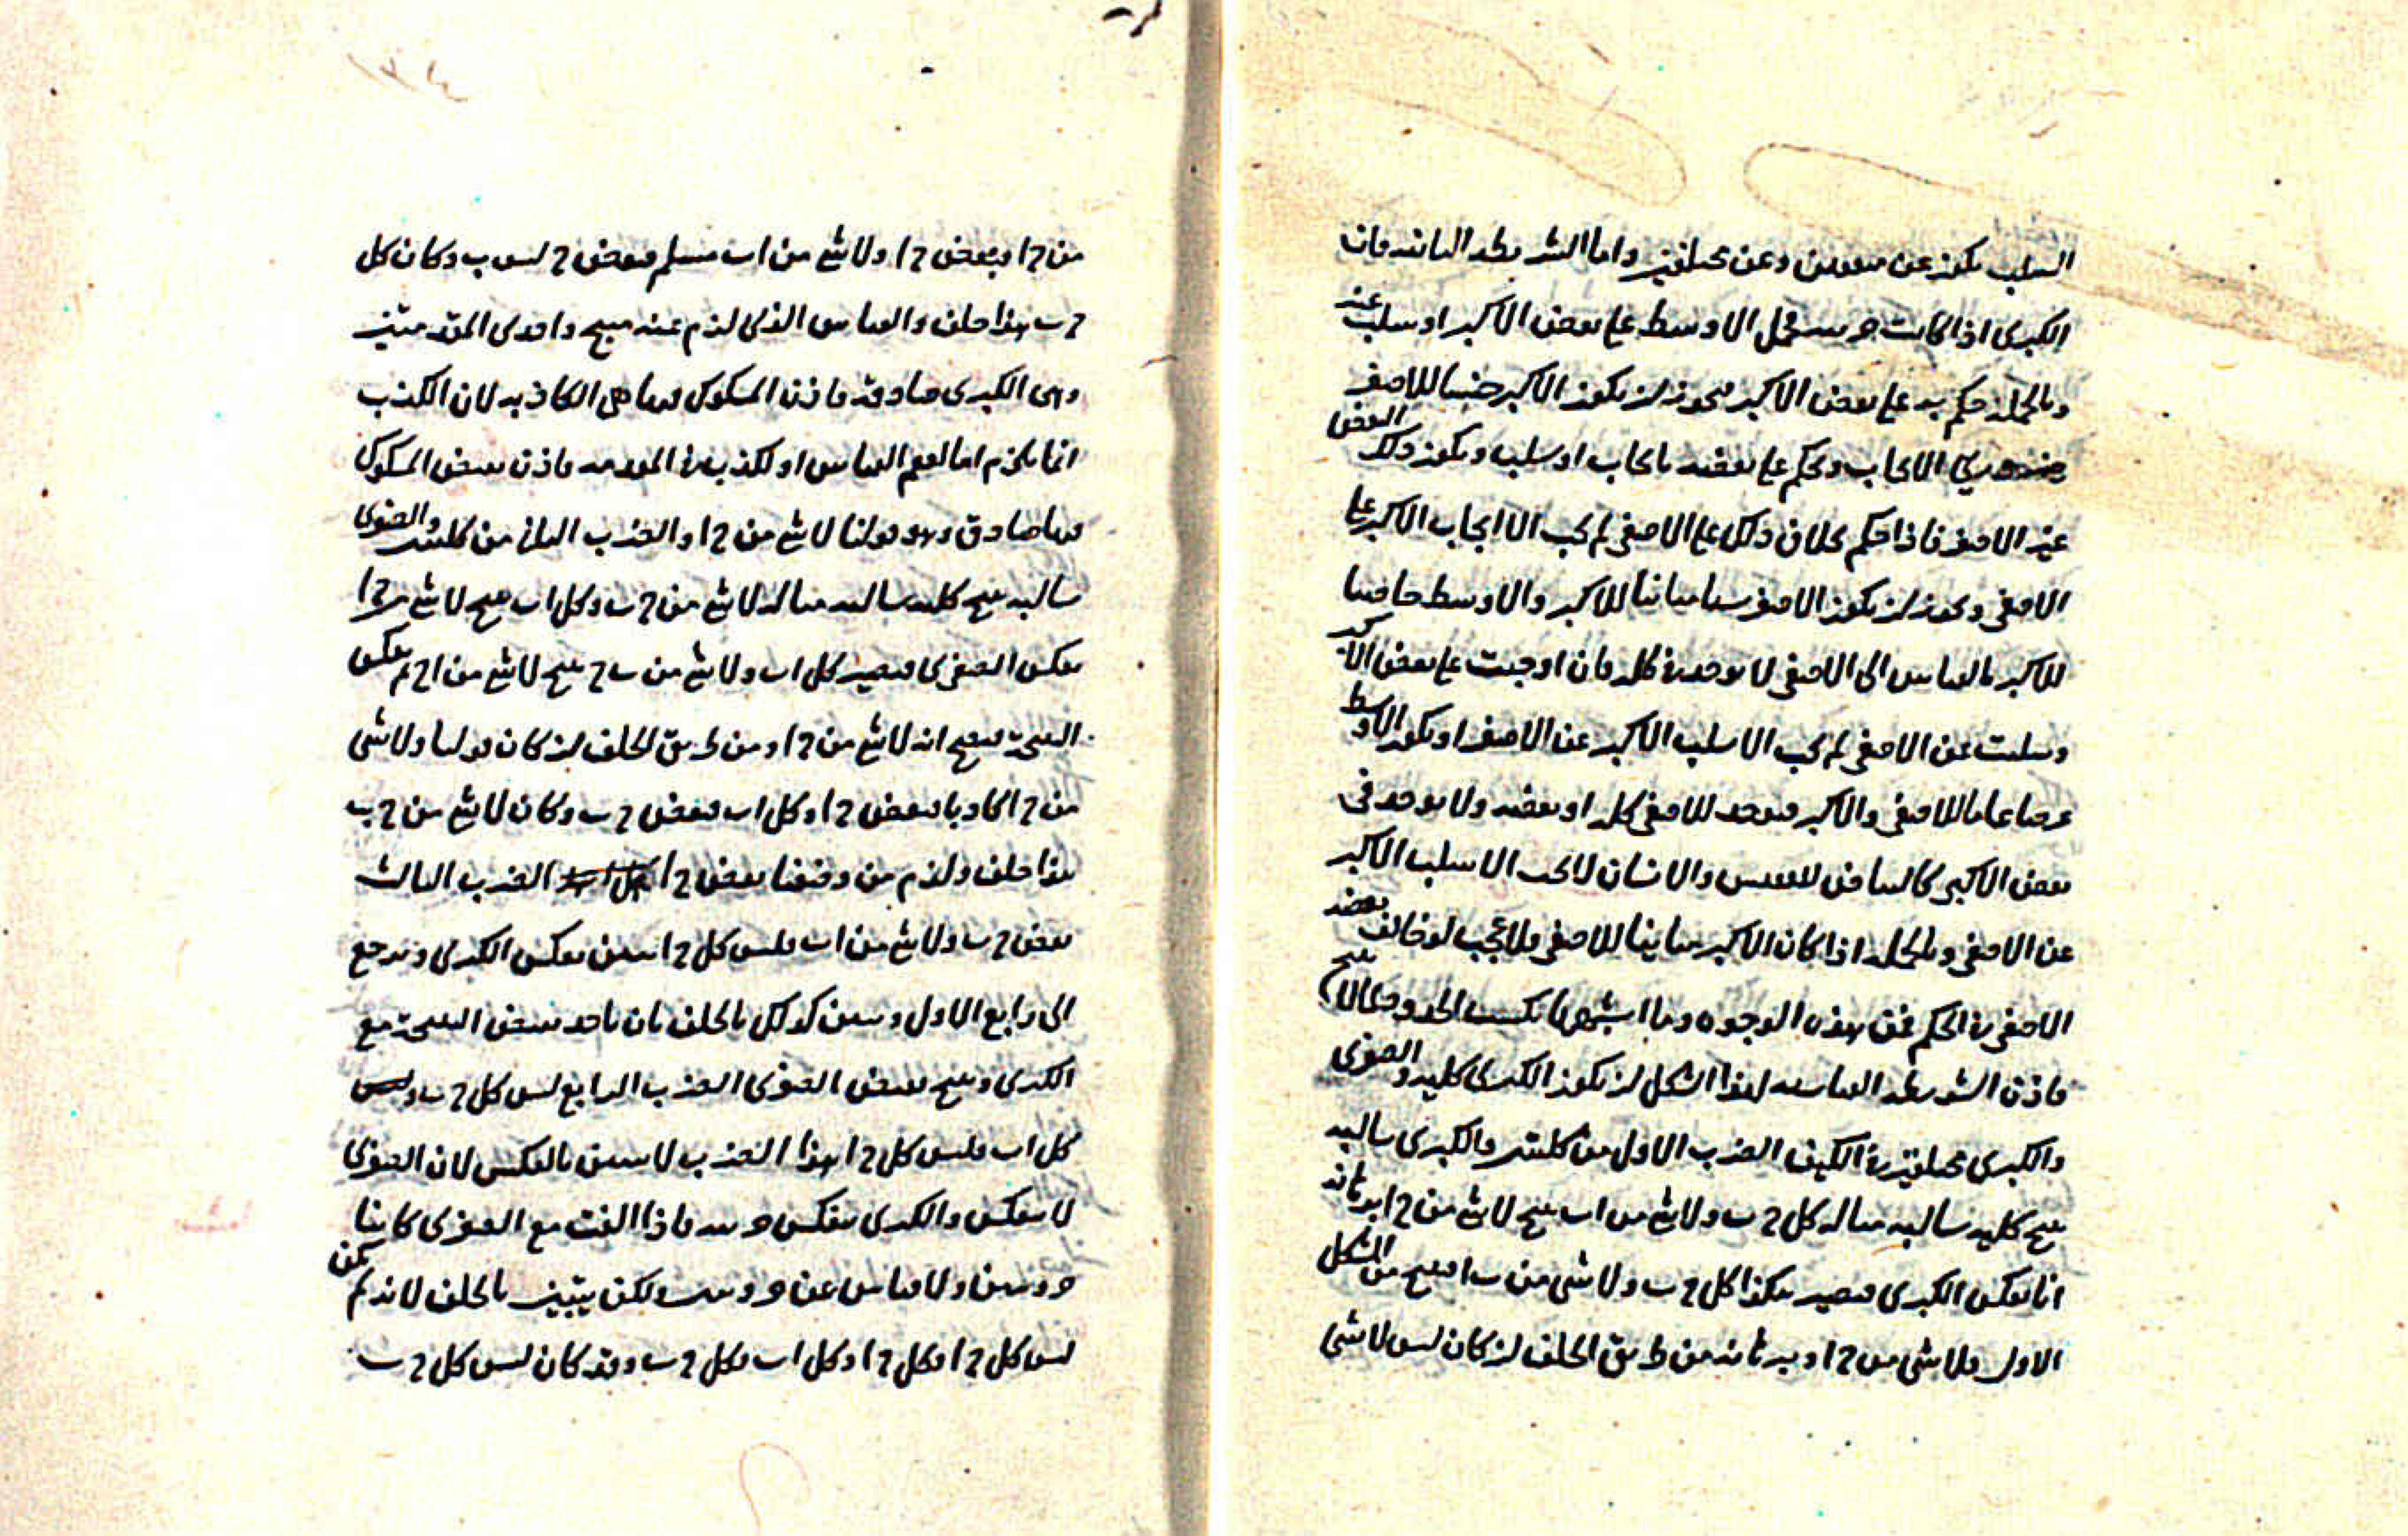 السلب يكون عن متفقين وعن مختلفين واما الشريطة الثانية فان
الكبرى اذا كانت جزئية حمل الاوسط على بعض الاكبر او سلب عنه
وبالجملة حكم به على بعض الاكبر فيجوز ان يكون الاكبر جنسا للاصغر
ضروري الايجاب ويحكم على بعضه بايجاب او سلب ويكون ذلك البعض
غير الاصغر فاذا حكم بخلاف ذلك على الاصغر لم يجب الا ايجاب الاكبر على
الاصغر ويجوز ان يكون الاصغر مباينا للاكبر والاوسط خاصيا
للاكبر بالقياس الى الاصغر لا يوجد في كله فان اوجبت على بعض الاكبر
وسلبت عن الاصغر لم يجب الا سلب الاكبر عن الاصغر او يكون الاوسط
عرضا عاما للاصغر والاكبر فيوجد للاصغر كله او بعضه ولا يوجد في
بعض الاكبر كالبياض للققنس والانسان لا يجب الا سلب الاكبر
عن الاصغر وبالجملة اذا كان الاكبر مباينا للاصغر فلا عجب لو خالف بعضه
الاصغر في الحكم فمن هذه الوجوه وما اشبهها تكتسب الحدود مثالا لا ينتج
فاذن الشريطة القياسية لهذا الشكل ان يكون الكبرى كلية والصغرى
والكبرى مختلفتين في الكيف الضرب الاول من كليتين والكبرى سالبة
ينتج كلية سالبة مثاله كل ج ب ولا شئ من ا ب ينتج لا شئ من ج ا برهانه
انا نعكس الكبرى فيصير هكذا كل ج ب ولا شى من ب ا فينتج من الشكل
الاول فلا شى من ج ا وبرهانه من طريق الخلف ان كان ليس لا شى
من ج ا فبعض ج ا ولا شئ من ا ب مسلم فبعض ج ليس ب وكان كل
ج ب هذا خلف والقياس الذى لزم عنه منتج واحدى المقدمتين
وهى الكبرى صادقة فاذن المشكوك فيها هى الكاذبة لان الكذب
انما يلزم اما لعقم القياس او لكذب في المقدمة فاذن نقيض المشكوك
فيها صادق وهو قولنا لا شئ من ج ا والضرب الثانى من كليتين والصغرى
سالبة ينتج كلية سالبة مثاله لا شئ من ج ب وكل ا ب ينتج لا شئ من ج ا
نعكس الصغرى فيصير كل ا ب ولا شئ من ب ج ينتج لا شئ من ا ج ثم نعكس
النتيجة فينتج انه لا شئ من ج ا ومن طريق الخلف ان كان قولنا ولا شى
من ج ا كاذبا فبعض ج ا وكل ا ب فبعض ج ب وكان لا شئ من ج ب
هذا خلف ولزم من وضعنا بعض ج ا الضرب الثالث
بعض ج ب ولا شئ من ا ب فليس كل ج ا يتبين بعكس الكبرى ويرجع
الى رابع الاول ويتبين كذلك بالخلف بان ناخذ نقيض النتيجة مع
الكبرى وينتج نقيض الصغرى الضرب الرابع ليس كل ج ب و
كل ا ب فليس كل ج ا هذا الضرب لا يتبين بالعكس لان الصغرى
لا تنعكس والكبرى تنعكس جزئية فاذا الفت مع الصغرى كانتا
جزءيتين ولا قياس عن جزءيتين ولكن يتبين بالخلف لانه لم يكن
ليس كل ج ا فكل ج ا وكل ا ب فكل ج ب وقد كان ليس كل ج ب